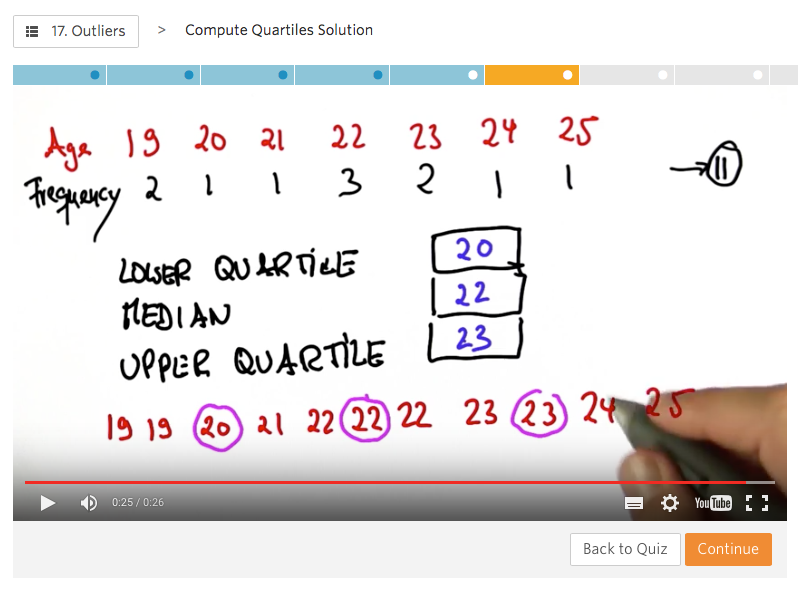 17. Outliers > Compute Quartiles Solution
Age 19 20 21 22 23 24 25
Frequency 2 1 1 3 2 1 1 → 11
LOWER QUARTILE 20
MEDIAN 22
UPPER QUARTILE 23
19 19 20 21 22 22 22 23 23 24 25
0:25 / 0:26 YouTube
Back to Quiz Continue